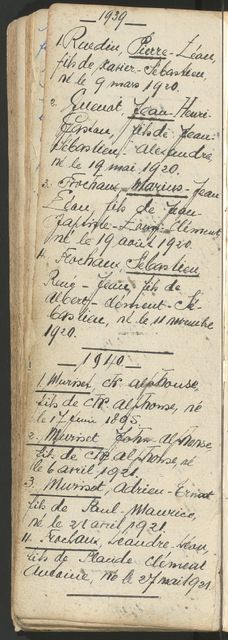 1939
1. Ruedin, Pierre-Léon,
fils de Xavier-Sébastien,
né le 9 mars 1920.
2. Guenot Jean-Henri-
Gaston, fils de Jean-
Sébastien Alexandre,
né le 19 mai 1920.
3. Frochaux Marius-Jean
Léon, fils de Jean-
Baptiste-Louis-Clément
né le 19 août 1920.
4. Frochaux, Sébastien,
Jean, fils de
Albert-Clément-Sé-
bastien, né le 11 novembre
1920.
1940
1. Muriset, Ch. Alphonse,
fils de Ch. Alphonse, né
le 17 juin 1895.
2. Muriset John-Alphonse
fils de Ch. Alphonse, né
le 6 avril 1921.
3. Muriset, Adrien-Ernest
fils de Paul-Maurice,
né le 21 avril 1921.
4. Frochaux, Léandre-Léon,
fils de Claude Clément
Antoine, né le 27 mai 1921.